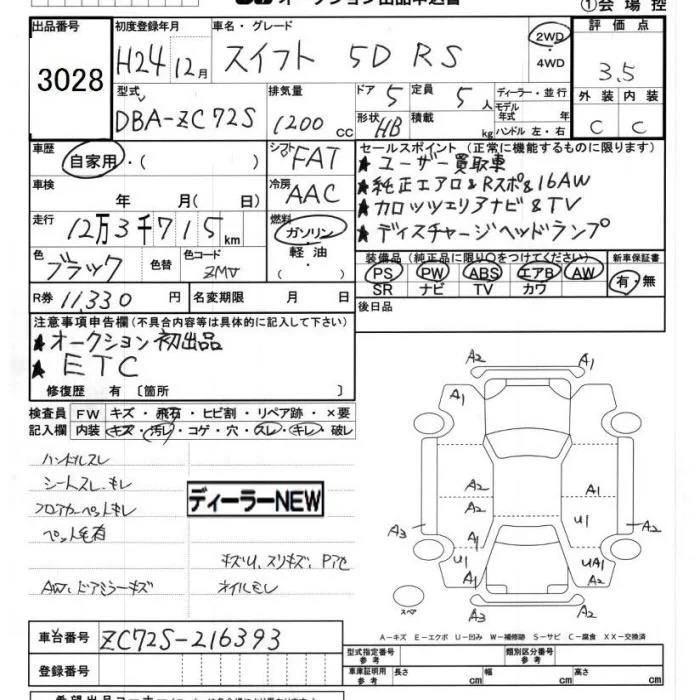 オークション出品申込書
①会場控
出品番号 3028
初度登録年月 H24 12月
車名・グレード スイフト 5D RS
2WD・4WD
評価点 3.5
外装 C 内装 C
型式 DBA-ZC72S
排気量 1200 cc
ドア 5 定員 5人
形状 HB 積載 kg
ディーラー・並行
モデル年式 年
ハンドル 左・右
車歴 自家用・( )
シフト FAT
車検 年 月( 日)
冷房 AAC
走行 12万3千715km
燃料 ガソリン・軽油・( )
色 ブラック 色替 色コード ZMV
R券 11,330円 名変期限 月 日
セールスポイント(正常に機能するものに限ります)
★ユーザー買取車
★純正エアロ&Rスポ&16AW
★カロッツェリアナビ&TV
★ディスチャージヘッドランプ
装備品(純正品に限り○をつけてください) 新車保証書
PS PW ABS エアB AW 有・無
SR ナビ TV カワ
後日品
注意事項申告欄(不具合内容等は具体的に記入して下さい)
★オークション初出品
★ETC
修復歴 有〔箇所 〕
検査員 FW キズ・飛石・ヒビ割・リペア跡・×要
記入欄 内装 キズ・汚レ・コゲ・穴・スレ・キレ・破レ
ハンドルスレ
シートスレ、キレ
フロアカーペットキレ
ペット毛有
ディーラーNEW
キズU、スリキズ、Pアセ
AW、ドアミラーキズ オイルモレ
A2 A1
A1 A2 A1
A2 A1
A2 U1
A3 A1 A2
U1 A1 A2 UA1
A2 A1
スペア
A-キズ E-エクボ U-凹み W-補修跡 S-サビ C-腐食 XX-交換済
車台番号 ZC72S-216393
登録番号
型式指定番号 参考 類別区分番号 参考
車庫証明用 参考 長さ cm 幅 cm 高さ cm